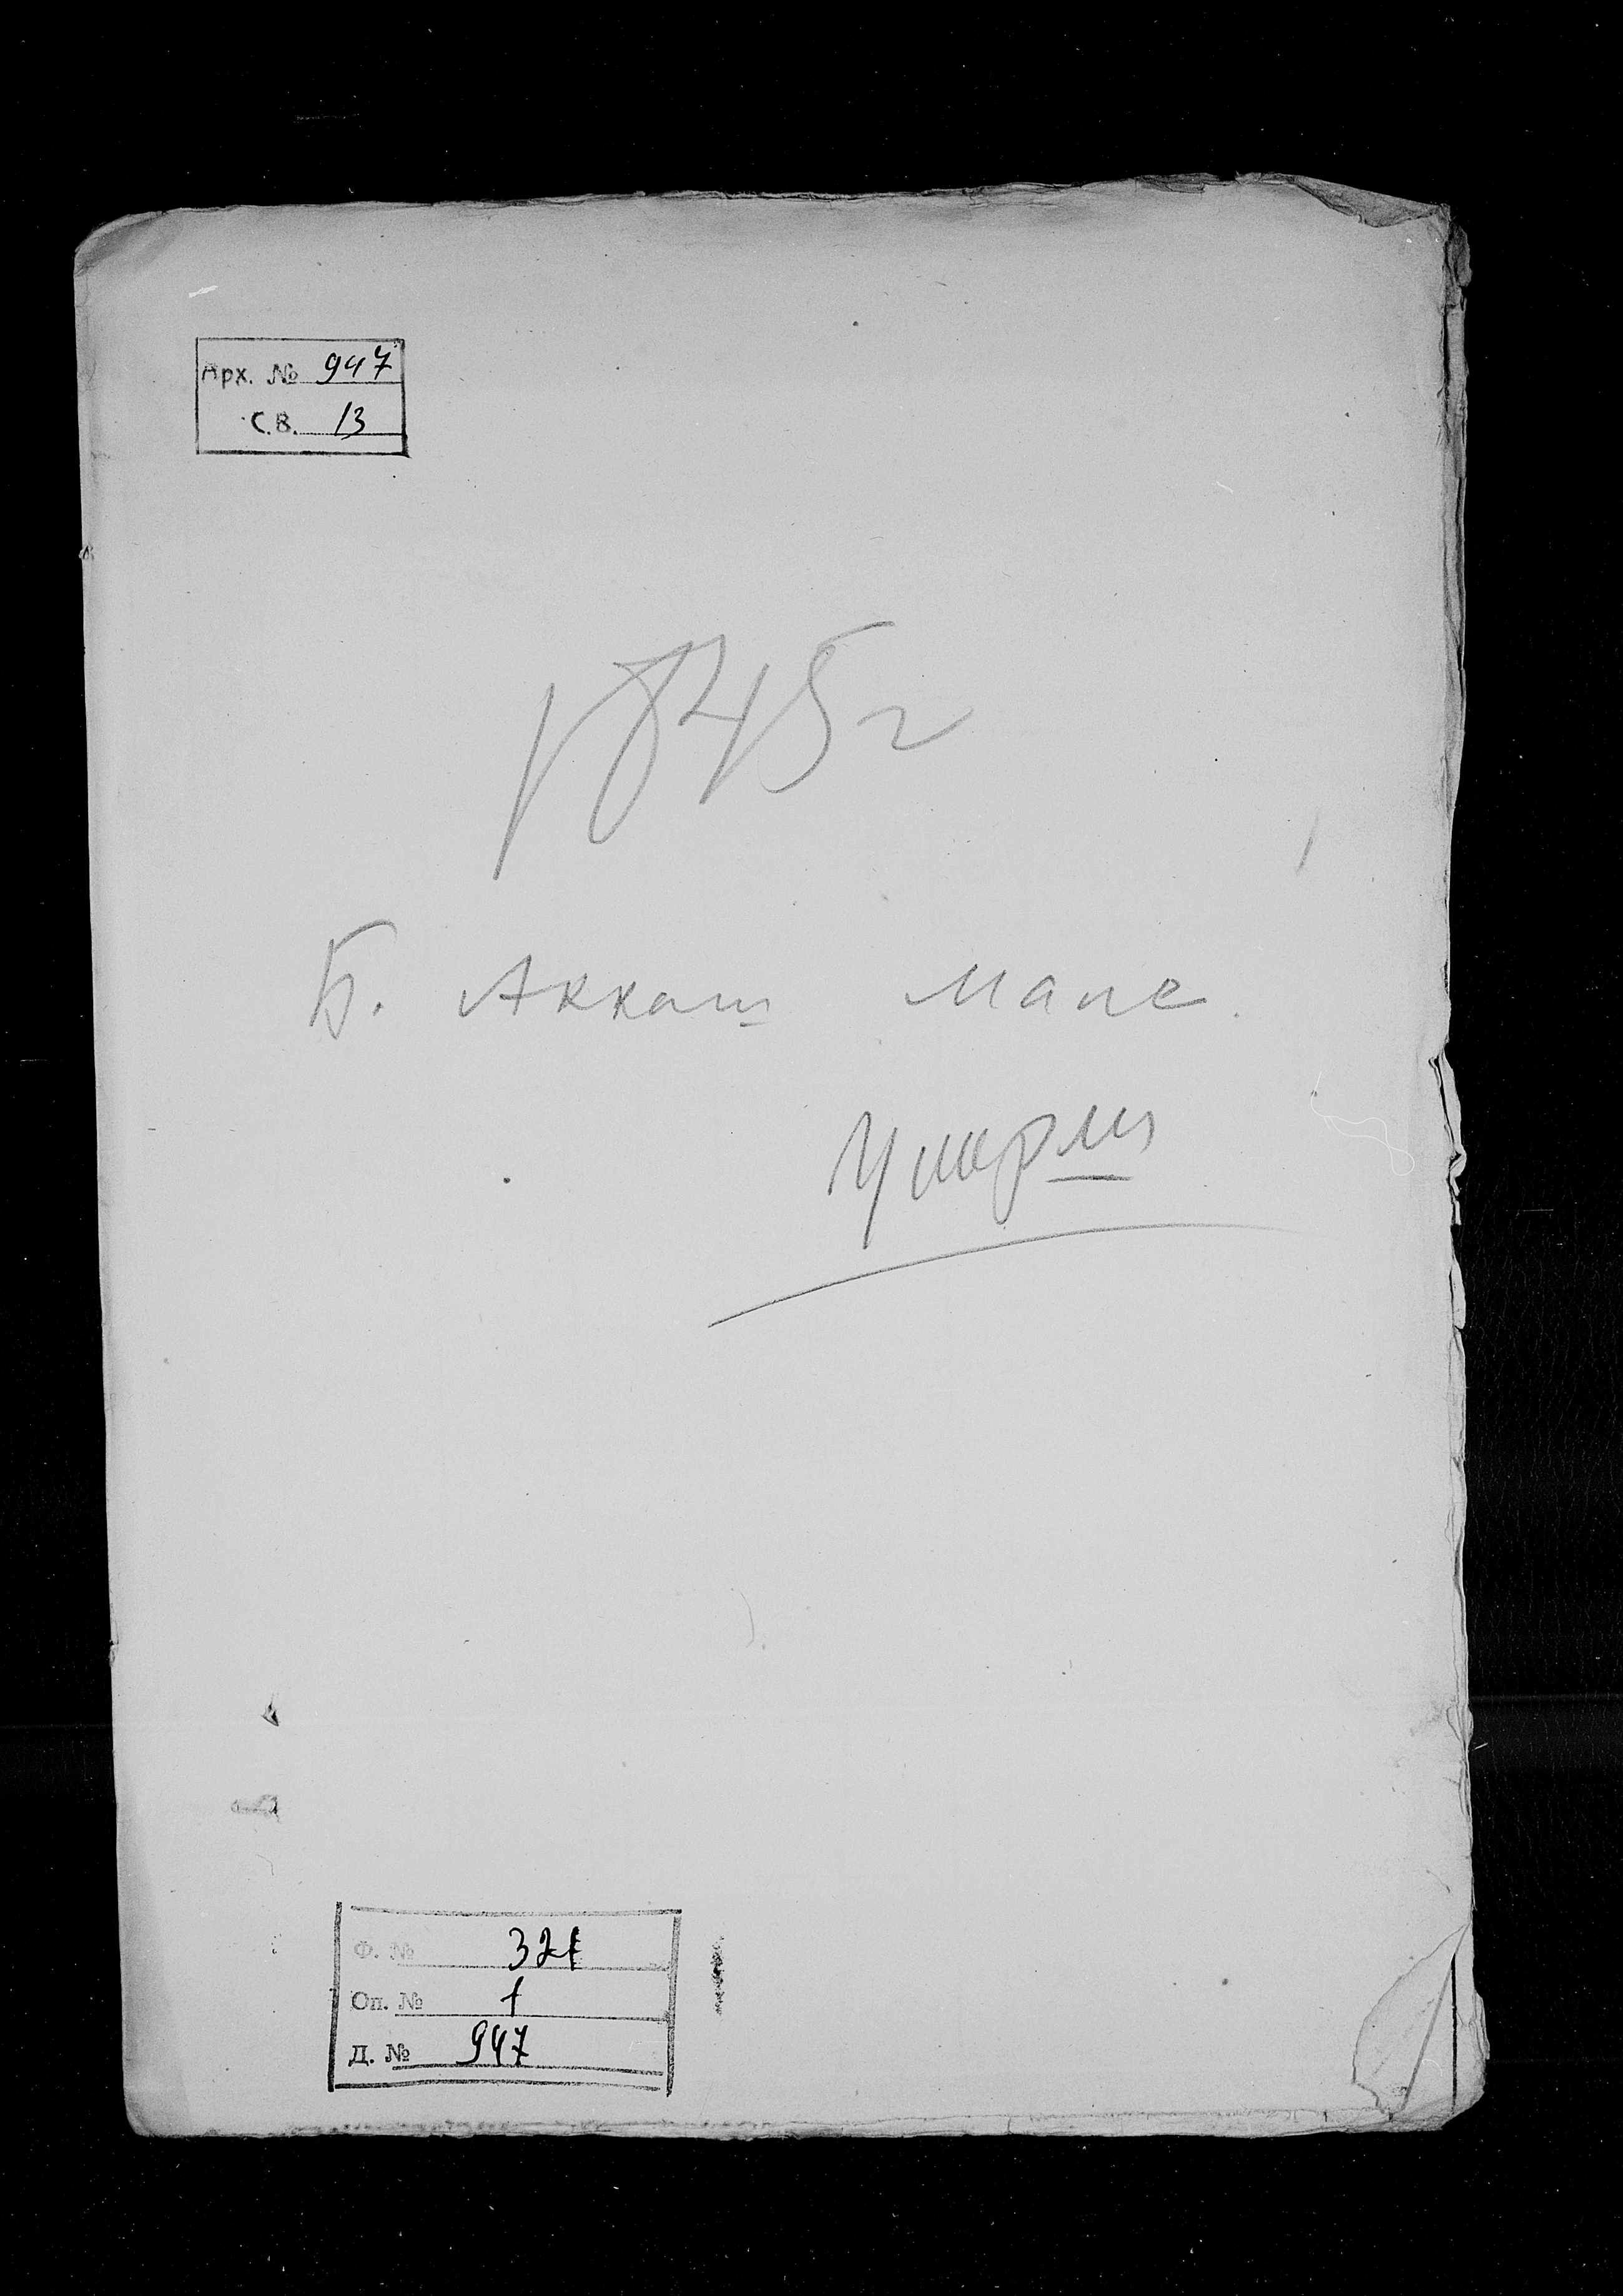 Арх. № 947
С.В. 13
1845 г
Б. Аккаш Мане.
Умерли
Ф. № 321
Оп. № 1
Д. № 947